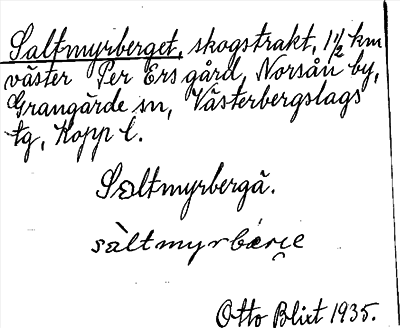 Saltmyrberget, skogstrakt, 1 1/2 km
väster Per Ers gård, Norsån by,
Grangärde sn, Västerbergslags
tg, Kopp l.
Saltmyrbergä.
sàltmyrbærje
Otto Blixt 1935.